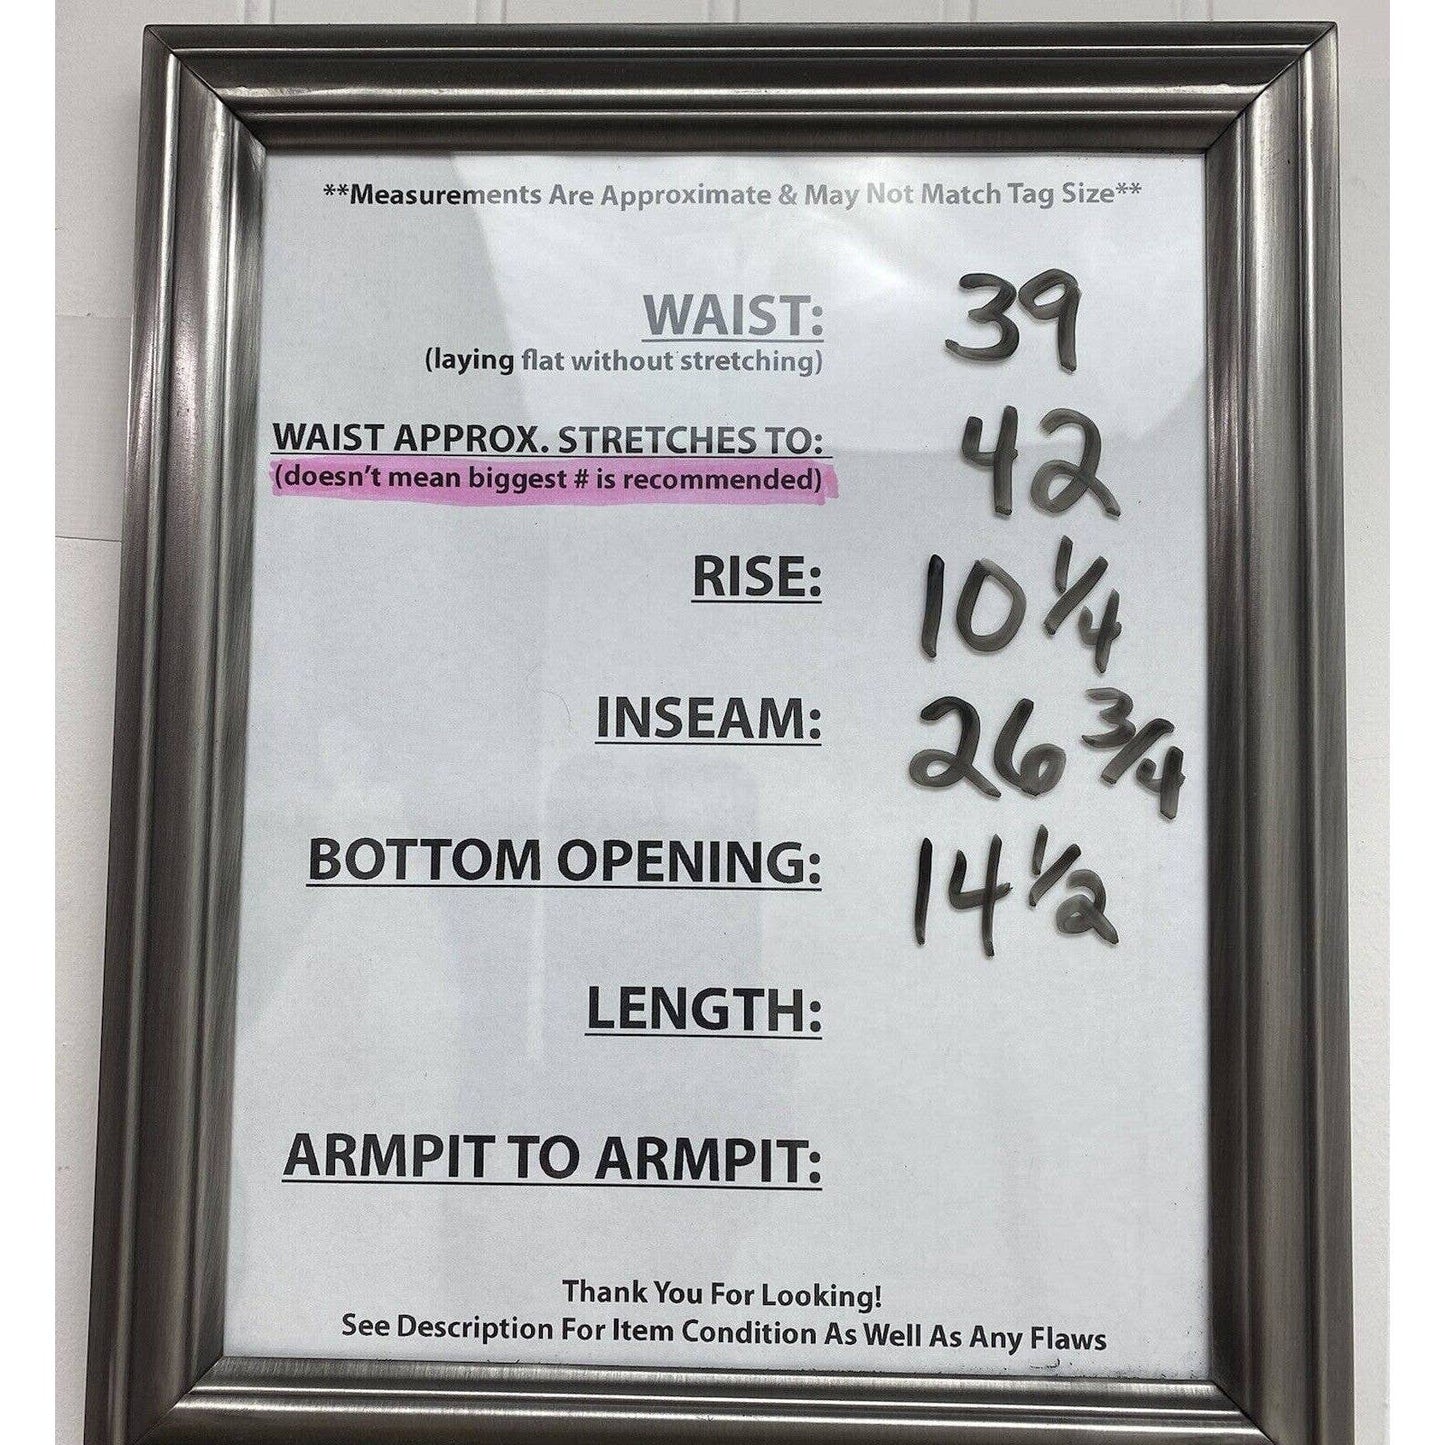 **Measurements Are Approximate & May Not Match Tag Size**
WAIST: 39
(laying flat without stretching)
WAIST APPROX. STRETCHES TO: 42
(doesn't mean biggest # is recommended)
RISE: 10 1/4
INSEAM: 26 3/4
BOTTOM OPENING: 14 1/2
LENGTH:
ARMPIT TO ARMPIT:
Thank You For Looking!
See Description For Item Condition As Well As Any Flaws